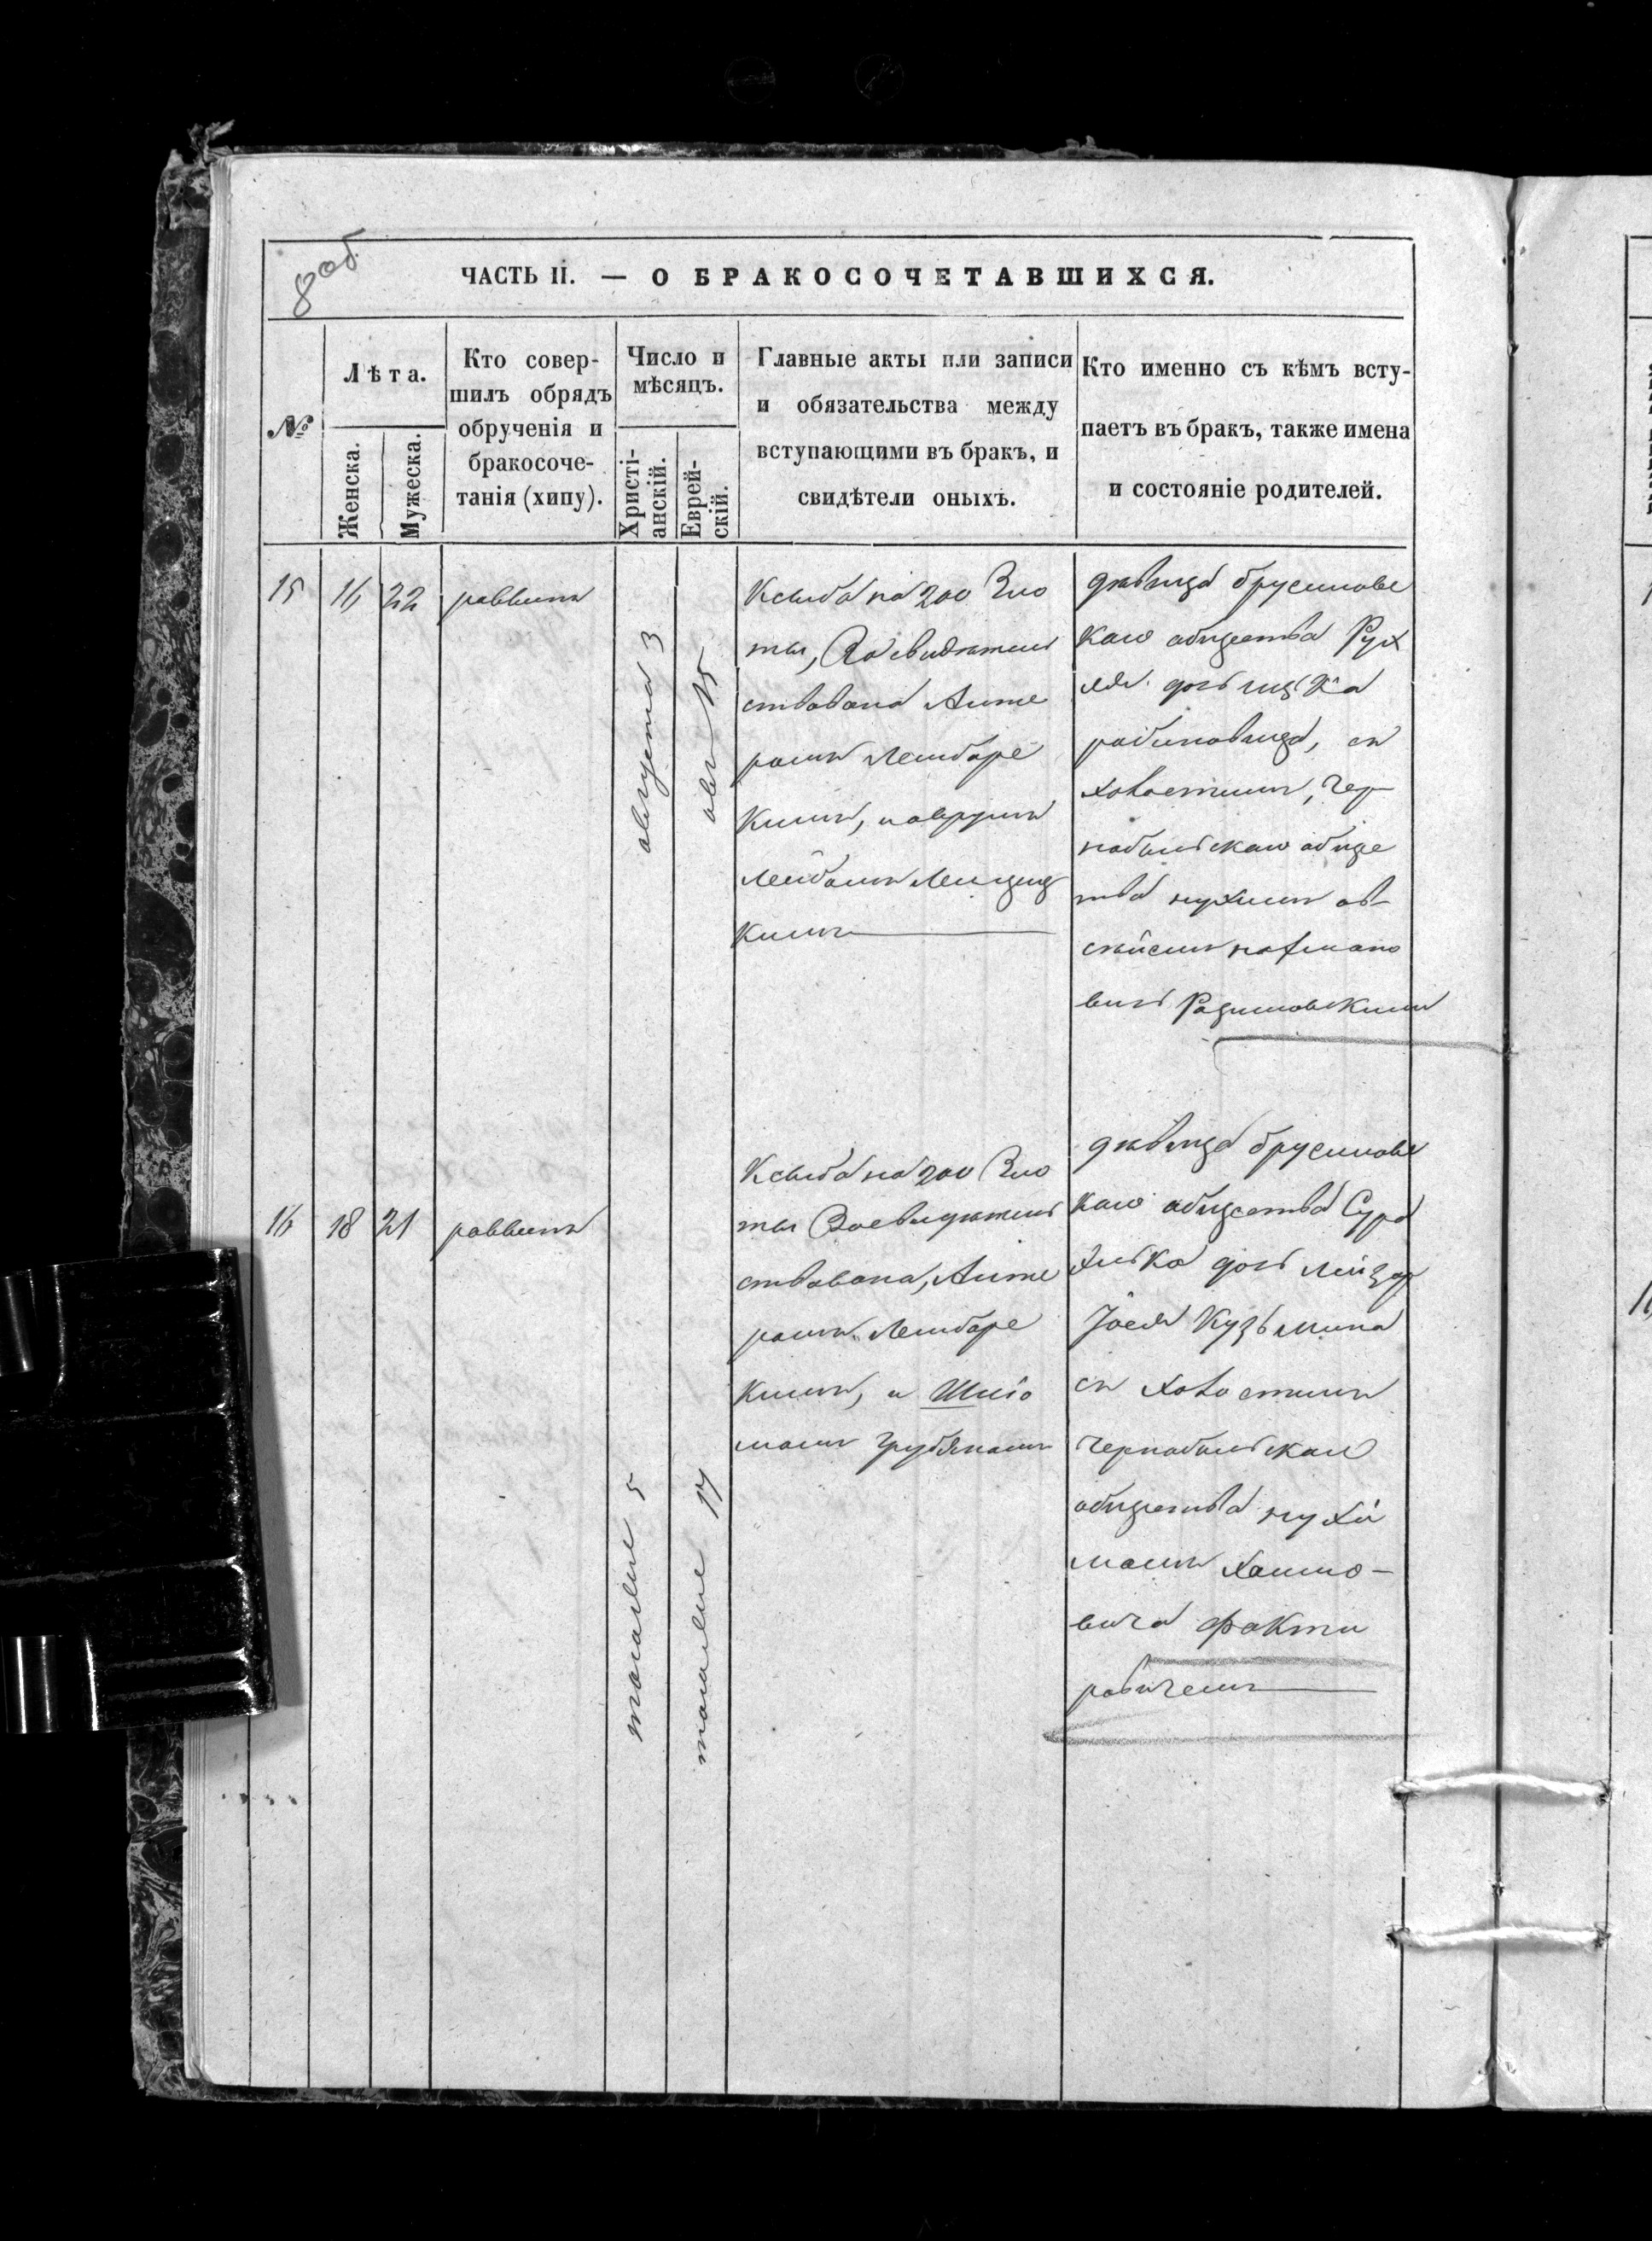 8 об.
ЧАСТЬ II. — О БРАКОСОЧЕТАВШИХСЯ.
№
Лѣта.
Женска.
Мужеска.
Кто совер-
шилъ обрядъ
обрученія и
бракосоче-
танія (хипу).
Число и
мѣсяцъ.
Христі-
анскій.
Еврей-
скій.
Главные акты или записи
и обязательства между
вступающими въ бракъ, и
свидѣтели оныхъ.
Кто именно съ кѣмъ всту-
паетъ въ бракъ, также имена
и состояніе родителей.
15
16
22
раввинъ
августа 3
авг 15
Ксыба на 200 Зло
ты, Засвидѣтель
ствована Анте
ромъ Лембаре
Кимъ, и
Лейбомъ
Кимъ
дѣвица брусилове
каго общества Рух
ля дочь ицка
рабиновица, съ
холостимъ, Чер
нобыльскаго обще
тва нухимъ ав
сѣйемъ нахмано
вичъ Радимовскимъ
16
18
21
раввинъ
тогоже 5
тогоже 17
Ксыба на 200 Зло
ты Засвидѣтель
ствована, Анте
ромъ Лембаре
Кимъ, и Шліо
момъ Грубяномъ
дѣвица брусилове
каго общества Сура
Хилька дочь лейзор
Іося Кузьмина
съ холостимъ
чернобыльскаго
общества нухи
момъ Хаимо-
вича факто
ровичемъ